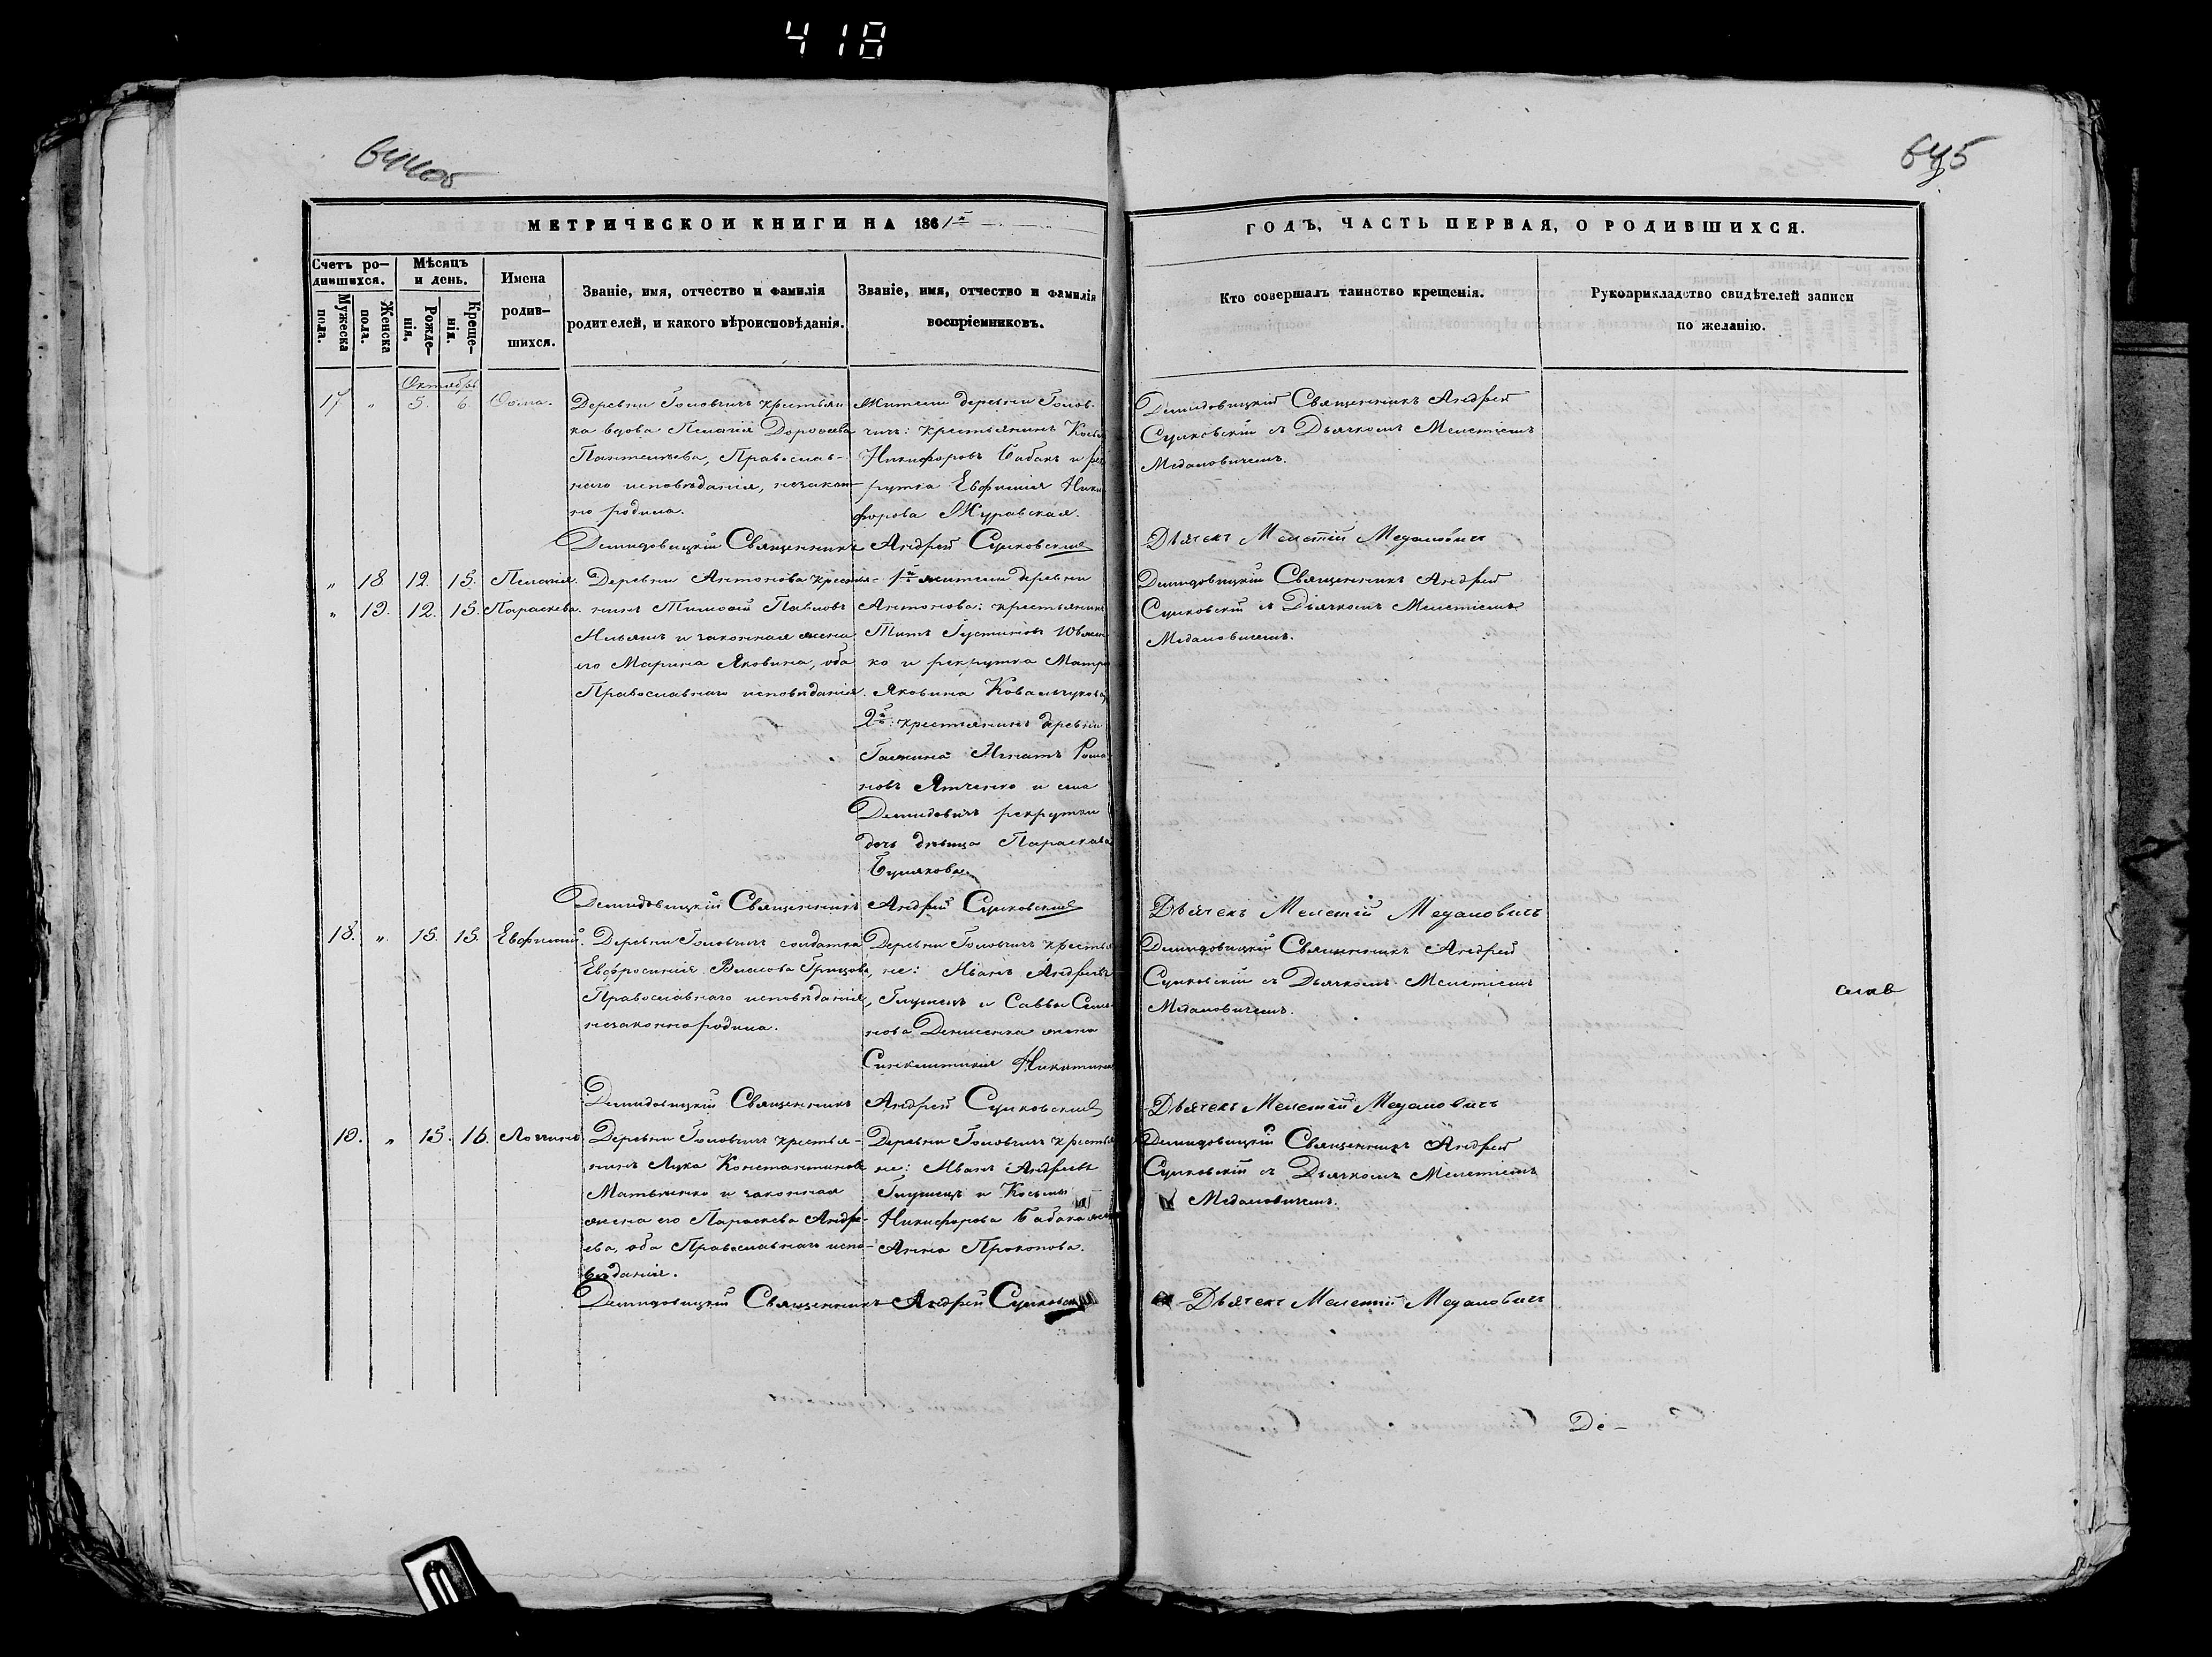 418
644об
645
МЕТРИЧЕСКОЙ КНИГИ НА 1861й
ГОДЪ, ЧАСТЬ ПЕРВАЯ, О РОДИВШИХСЯ.
Счетъ ро-
дившихся.
Мужеска
пола.
Женска
пола.
Мѣсяцъ
и день.
Рожде-
нія.
Креще-
нія.
Имена
родив-
шихся.
Званіе, имя, отчество и фамилія
родителей, и какого вѣроисповѣданія.
Званіе, имя, отчество и фамилія
воспріемниковъ.
Кто совершалъ таинство крещенія.
Рукоприкладство свидѣтелей записи
по желанію.
Октябрь
17. " 5. 6. Ѳома.
Деревни Головчичъ крестьян
ка вдова Пелагія Дороѳеева
Пантелѣева, Православ-
наго исповѣданія, незакон-
но родила.
Жители деревни Голов-
чичъ: крестьянинъ Косьма
Никифоровъ Бабакъ и ре
рутка Евфимія Ники
форова Журавская.
Демидовицкій Священникъ Андрей
Сулковскій съ Дьячкомъ Мелетіемъ
Медаловичемъ.
Демидовицкій Священникъ Андрей Сулковскій
Дьячекъ Мелетій Медаловичъ
" 18 12. 15. Пелагія.
" 19. 12. 15. Параскева.
Деревни Антонова крестья-
нинъ Тимоѳей Павловъ
Ильяшъ и законная жена
его Марина Яковина, оба
Православнаго исповѣданія.
1й жители деревни
Антонова: крестьянинъ
Титъ Іустиновъ
ко и рекрутка Матро
Яковина Ковальчукова
2й: крестьянинъ деревни
Галкина Игнатъ Рома
новъ Ятченко и села
Демидовичъ рекрутки
дочь дѣвица Параскева
Булякова.
Демидовицкій Священникъ Андрей
Сулковскій съ Дьячкомъ Мелетіемъ
Медаловичемъ.
Демидовицкій Священникъ Андрей Сулковскій
Дьячекъ Мелетій Медаловичъ
18. " 15. 15. Евфимій.
Деревни Головчичъ солдатка
Евфросинія Власова Грицова,
Православнаго исповѣданія,
незаконно родила.
Деревни Головчичъ крестья
не: Иванъ Андреевъ
Глушецъ и Саввы Семе
нова Денисенка жена
Синклитикія Никитина
Демидовицкій Священникъ Андрей
Сулковскій съ Дьячкомъ Мелетіемъ
Медаловичемъ.
Демидовицкій Священникъ Андрей Сулковскій
Дьячекъ Мелетій Медаловичъ
19. " 15. 16. Логгинъ.
Деревни Головчичъ крестья-
нинъ Лука Константиновъ
Матвѣенко и законная
жена его Параскева Андре-
ева, оба Православнаго испо-
вѣданія.
Деревни Головчичъ крестья
не: Иванъ Андреевъ
Глушецъ и Косьмы
Никифорова Бабака жена
Анна Прокопова.
Демидовицкій Священникъ Андрей
Сулковскій съ Дьячкомъ Мелетіемъ
Медаловичемъ.
Демидовицкій Священникъ Андрей Сулковскій
Дьячекъ Мелетій Медаловичъ
Де-